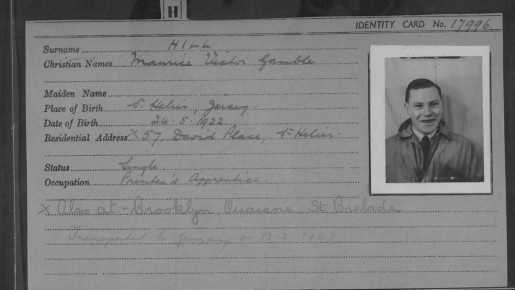 H
IDENTITY CARD No. 17996.
Surname HILL
Christian Names Maurice Victor Gamble
Maiden Name
Place of Birth St. Helier, Jersey.
Date of Birth 24.5.1922
Residential Address X 57, David Place, St Helier.
Status Single
Occupation Printer's Apprentice
X Also at - Brooklyn Quaisne St Brelade
Transported to Germany on 13 2